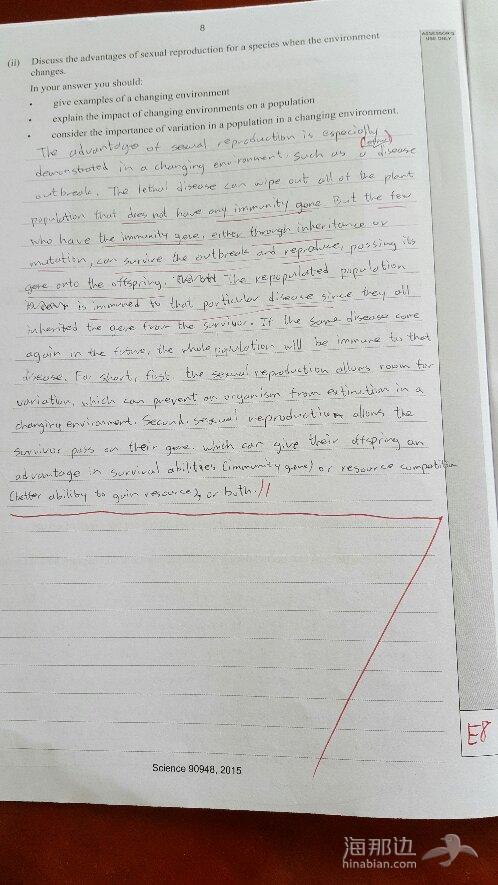 8
ASSESSOR'S
USE ONLY
(ii) Discuss the advantages of sexual reproduction for a species when the environment
changes.
In your answer you should:
• give examples of a changing environment
• explain the impact of changing environments on a population
• consider the importance of variation in a population in a changing environment.
The advantage of sexual reproduction is especially
demonstrated in a changing environment. Such as a disease
outbreak. The lethal disease can wipe out all of the plant
population that does not have any immunity gene. But the few
who have the immunity gene, either through inheritance or
mutation, can survive the outbreak and reproduce, passing its
gene onto the offspring. The repopulated population
is immuned to that particular disease since they all
inherited the gene from the survivor. If the same disease come
again in the future, the whole population will be immune to that
disease. For short, first, the sexual reproduction allows room for
variation, which can prevent an organism from extinction in a
changing environment. Second, sexual reproduction allows the
survivor pass on their gene, which can give their offspring an
advantage in survival abilities (immunity gene) or resource competition
(better ability to gain resource), or both.
E8
Science 90948, 2015
海那边
hinabian.com